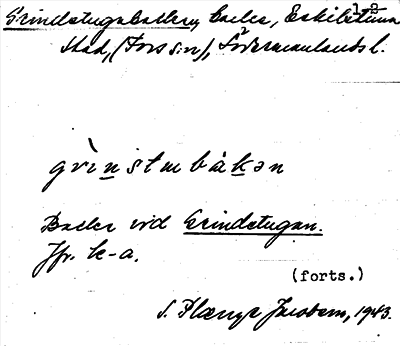 Grindstugubacken, backe, Eskilstuna
stad, (Fors s:n), Södermanlands l.
grìnstu bákən
Backe vid Grindstugan.
Jfr. k-a.
(forts.)
S. Jacobson, 1943.